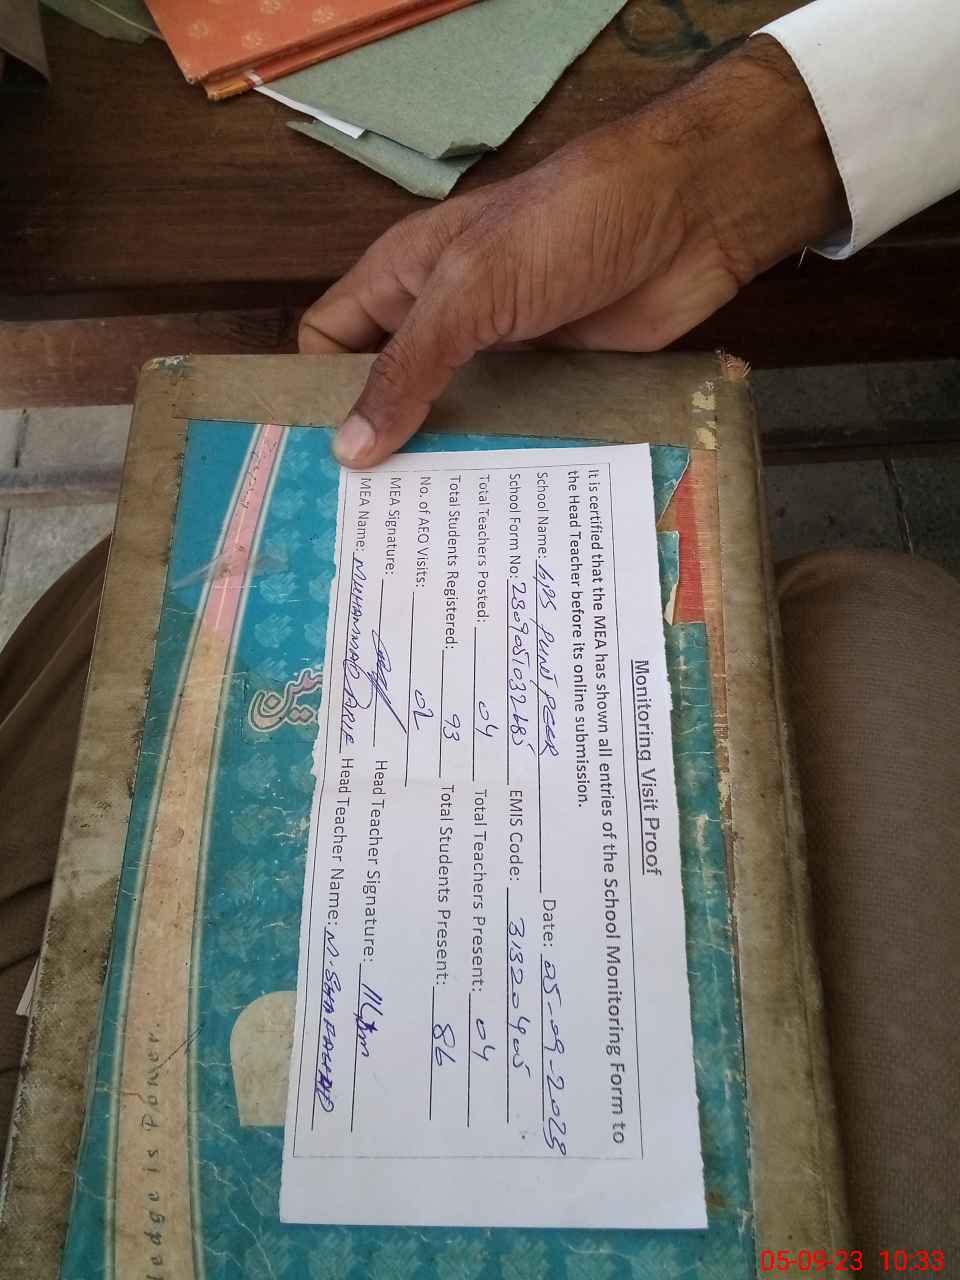 Monitoring Visit Proof
It is certified that the MEA has shown all entries of the School Monitoring Form to
the Head Teacher before its online submission.
School Name: GPS PUNJ PEER Date: 05-09-2023
School Form No: EMIS Code: 31320405
Total Teachers Posted: 04 Total Teachers Present: 04
Total Students Registered: 93 Total Students Present: 86
No. of AEO Visits: 02
MEA Signature: Head Teacher Signature:
MEA Name: MUHAMMAD ARIF Head Teacher Name:
is Power
05-09-23 10:33